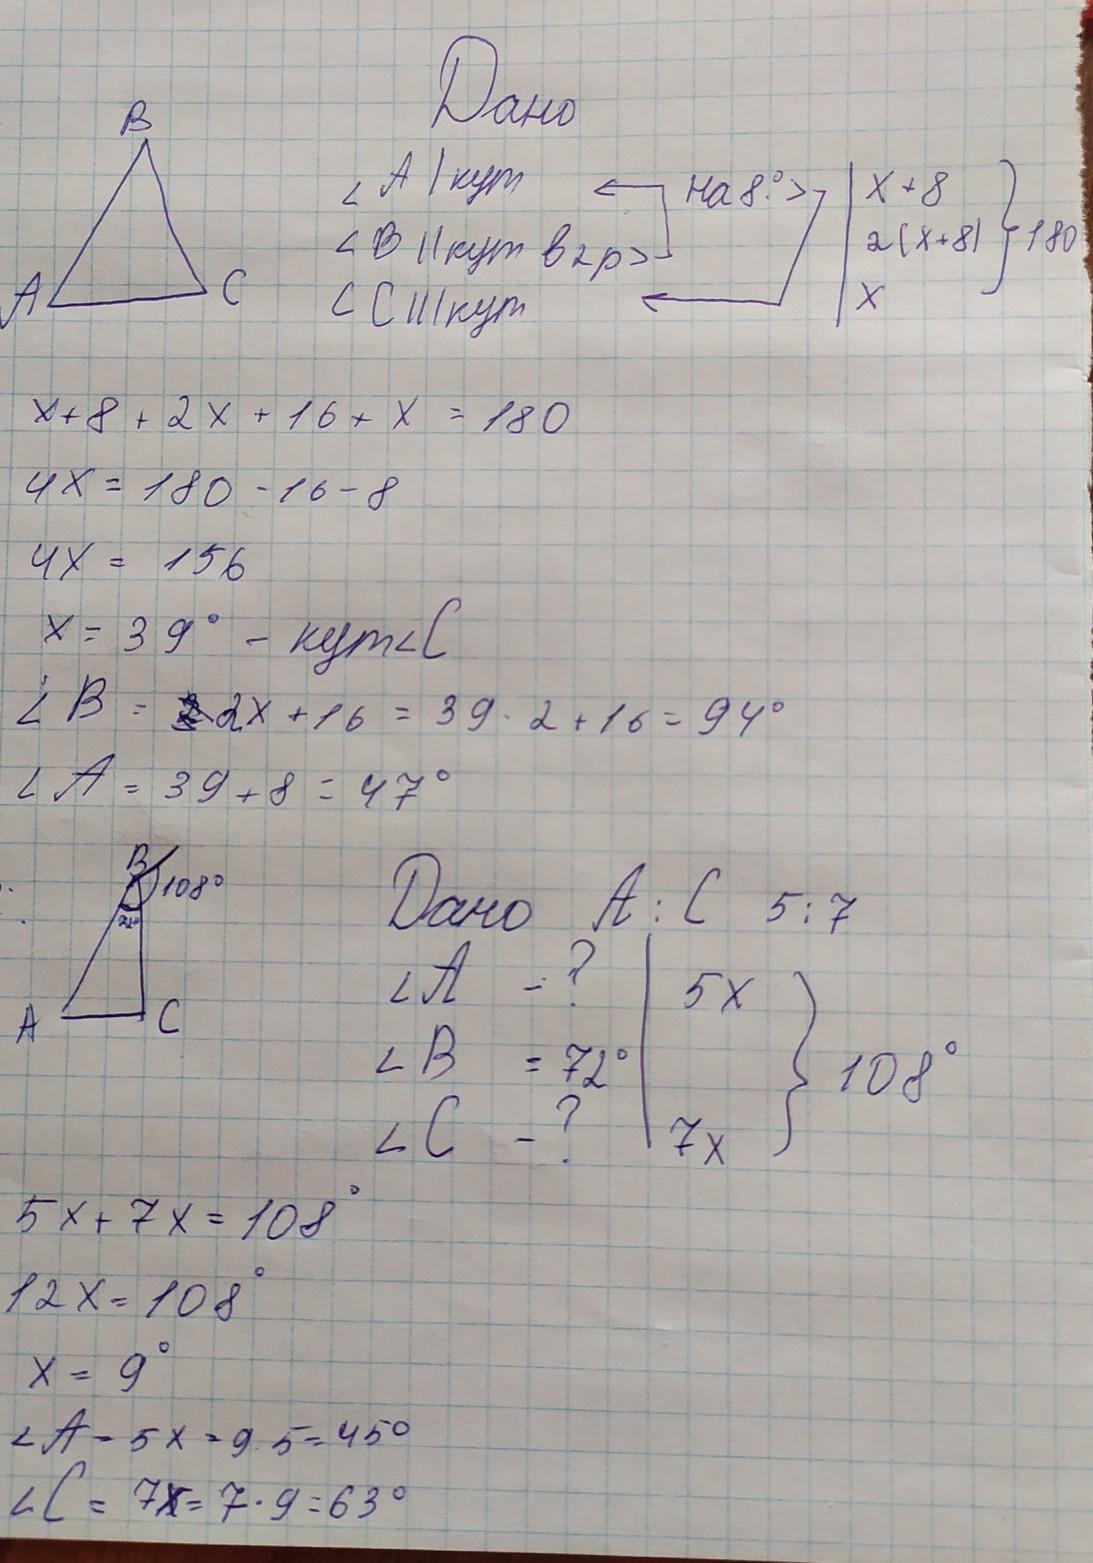 Дано
B
A
C
∠A I кут ← на 8° > | x+8
∠B II кут в 2 р > | 2(x+8) } 180
∠C III кут ← | x
x+8+2x+16+x = 180
4x = 180-16-8
4x = 156
x = 39° - кут ∠C
∠B = 2x+16 = 39·2+16 = 94°
∠A = 39+8 = 47°
B
108°
A
C
Дано A:C 5:7
∠A - ? | 5x
∠B = 72° | } 108°
∠C - ? | 7x
5x+7x = 108°
12x = 108°
x = 9°
∠A - 5x = 9·5 = 45°
∠C = 7x = 7·9 = 63°